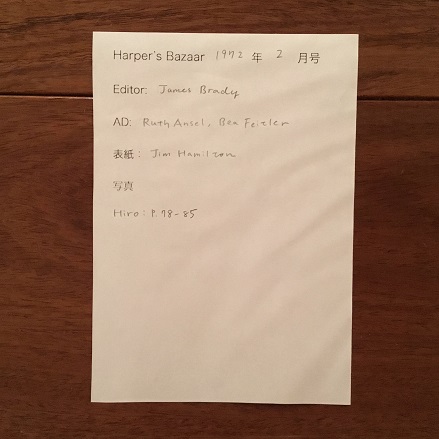 Harper's Bazaar 1972 年 2 月号
Editor: James Brady
AD: Ruth Ansel, Bea Feitler
表紙: Jim Hamilton
写真
Hiro: P.78-85